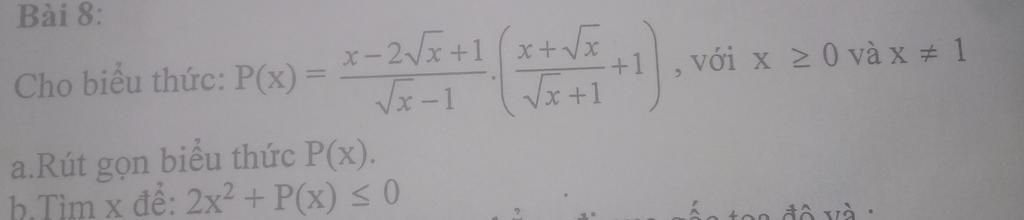 Bài 8:
Cho biểu thức: P(x) = \frac{x-2\sqrt{x}+1}{\sqrt{x}-1}.\left(\frac{x+\sqrt{x}}{\sqrt{x}+1}+1\right), với x ≥ 0 và x ≠ 1
a.Rút gọn biểu thức P(x).
b.Tìm x để: 2x² + P(x) ≤ 0